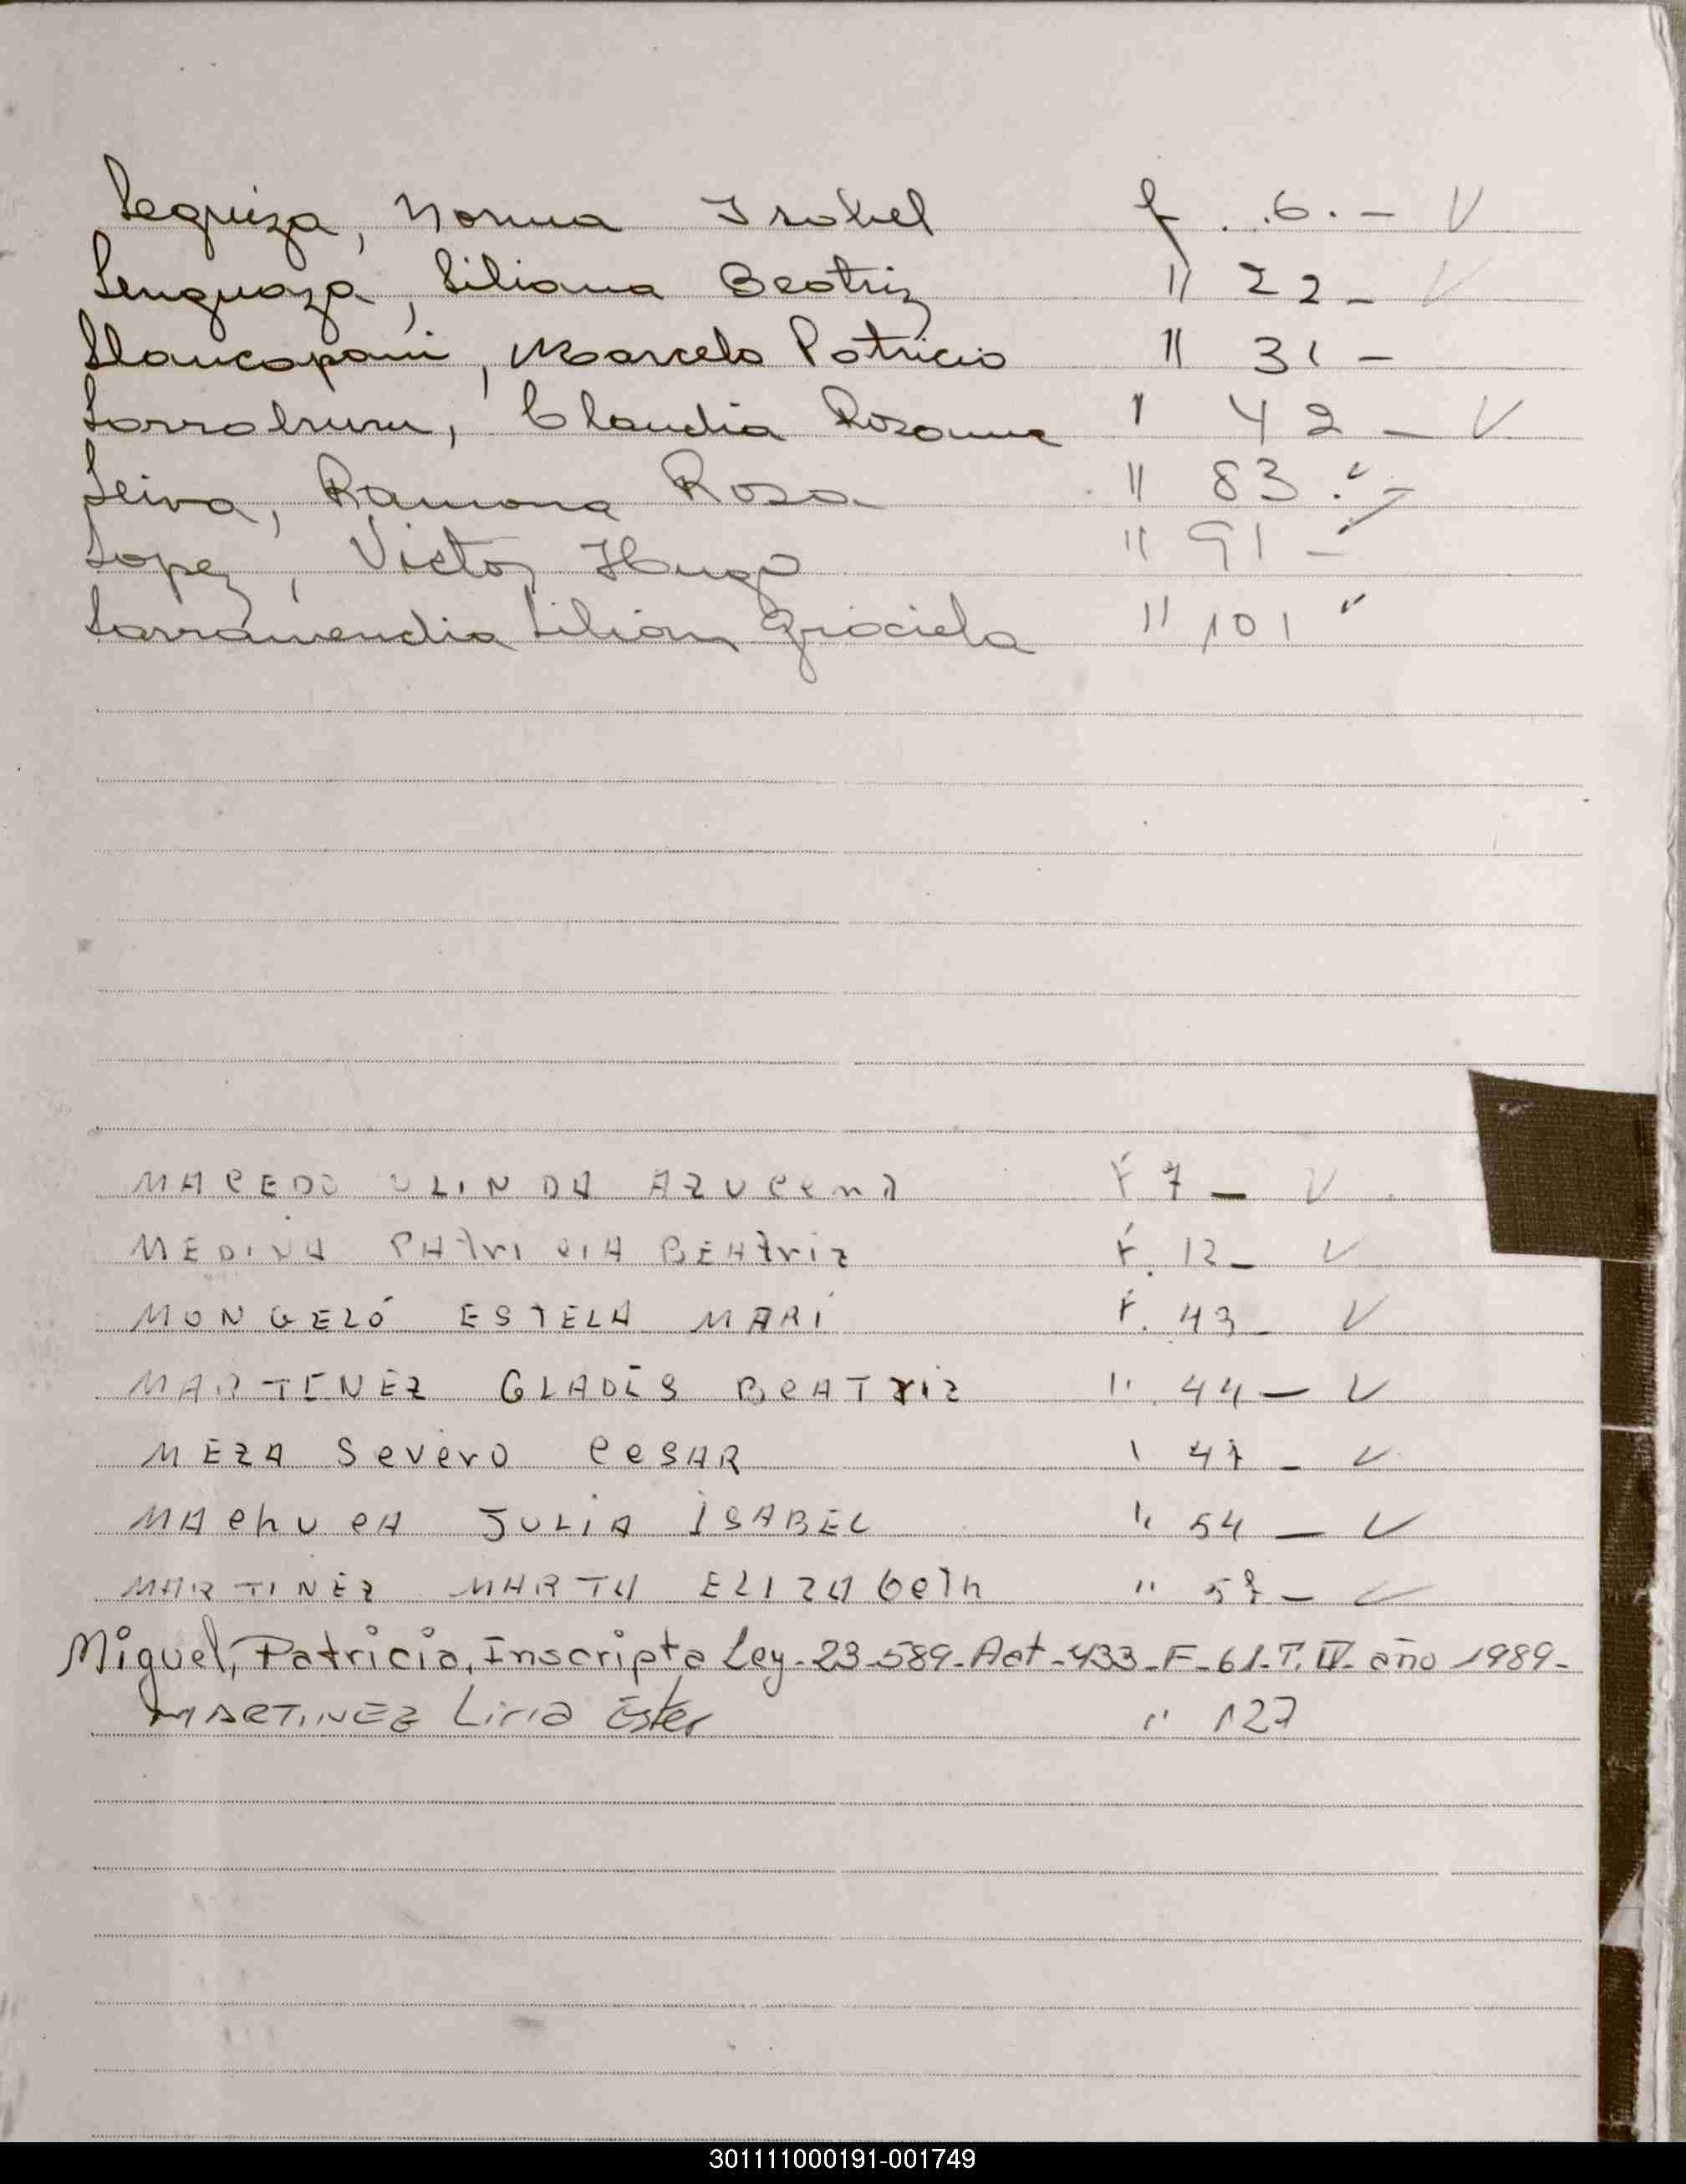 Leguiza, Norma Isabel f. 6.- V
Lenguaza, Liliana Beatriz " 22- V
Llancapani, Marcelo Patricio " 31-
Larrabura, Claudia Rosana " 42- V
Leiva, Ramona Rosa " 83.-
Lopez, Victor Hugo " 91-
Larramendia Lilian Graciela " 101
MACEDO ULINDA AZUCENA F 7- V
MEDINA PATRICIA BEATriz F. 12- V
MONGELÓ ESTELA MARI F. 43- V
MARTINEZ GLADIS BEATriz " 44- V
MEZA Severo CeSAR " 47- V
MAChUCA JULIA ISABEL " 54- V
MARTINEZ MARTA ELIZAbeTh " 57- V
Miguel, Patricia, Inscripta Ley-23-589-Act-433-F-61-T. IV- año 1989-
MARTINEZ Liria Ester " 127
301111000191-001749